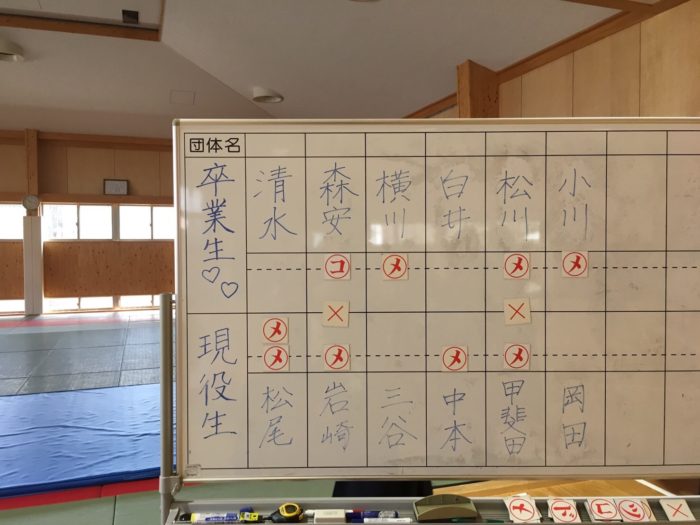 団体名
卒業生♡♡
清水
森安
横川
白井
松川
小川
コ
メ
メ
メ
×
×
メ
メ
メ
メ
メ
現役生
松尾
岩崎
三谷
中本
甲斐田
岡田
メ
ド
コ
ツ
×